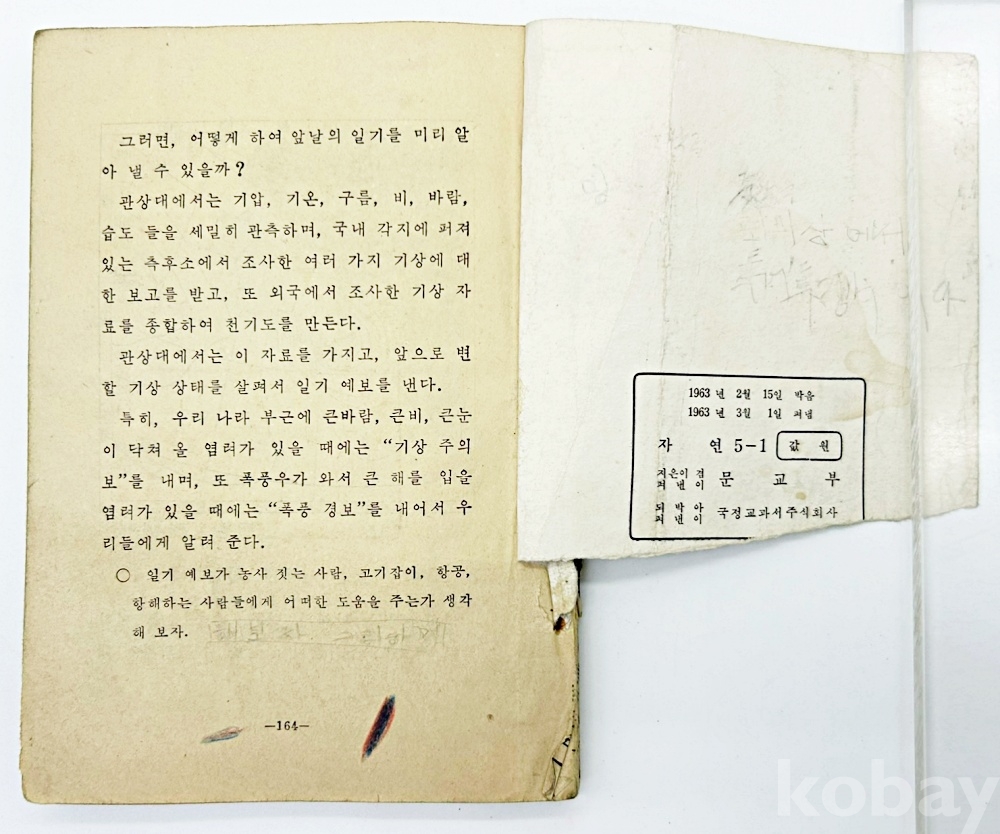 그러면, 어떻게 하여 앞날의 일기를 미리 알
아 낼 수 있을까?
관상대에서는 기압, 기온, 구름, 비, 바람,
습도 들을 세밀히 관측하며, 국내 각지에 퍼져
있는 측후소에서 조사한 여러 가지 기상에 대
한 보고를 받고, 또 외국에서 조사한 기상 자
료를 종합하여 천기도를 만든다.
관상대에서는 이 자료를 가지고, 앞으로 변
할 기상 상태를 살펴서 일기 예보를 낸다.
특히, 우리 나라 부근에 큰바람, 큰비, 큰눈
이 닥쳐 올 염려가 있을 때에는 “기상 주의
보”를 내며, 또 폭풍우가 와서 큰 해를 입을
염려가 있을 때에는 “폭풍 경보”를 내어서 우
리들에게 알려 준다.
○ 일기 예보가 농사 짓는 사람, 고기잡이, 항공,
항해하는 사람들에게 어떠한 도움을 주는가 생각
해 보자. 해 보자.
—164—
1963년 2월 15일 박음
1963년 3월 1일 펴냄
자 연 5-1 값 원
지은이 겸
펴낸이 문교부
되박아
펴낸이 국정교과서주식회사
kobay